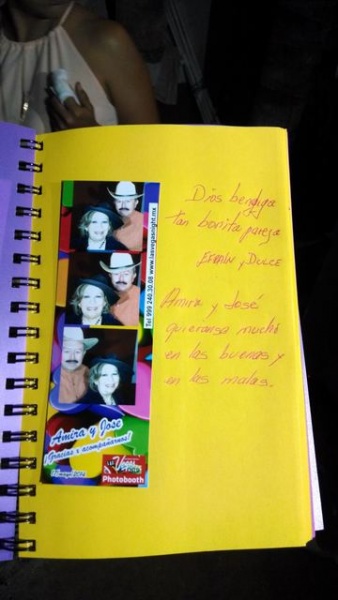 Dios bendiga
tan bonita pareja
EFRAÍN y DULCE
Amira y José
quieranse mucho
en las buenas y
en las malas.
Tel 999 240 30 08 www.lasvegasnight.mx
Amira y Jose
¡Gracias x acompañarnos!
Las Vegas
Photobooth